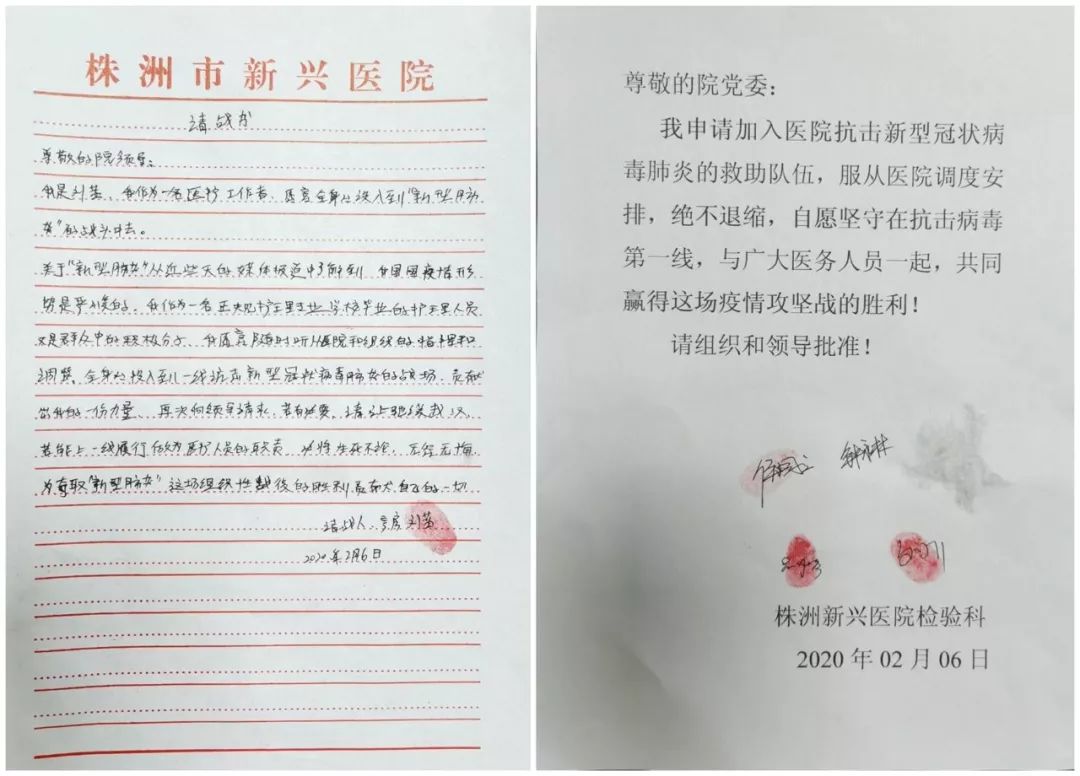 株洲市新兴医院
请战书
尊敬的院领导:
我是刘苗、我作为一名医疗工作者,愿意全身心投入到“新型肺
炎”的战斗中去。
关于“新型肺炎”从近些天的媒体报道中了解到,我国国疫情形
势是严峻的,我作为一名正规护理专业学校毕业的护理人员
又是群众中的积极分子,我愿意随时听从医院和组织的指挥和
调整、全身心投入到一线抗击新型冠状病毒肺炎的战场,贡献
出我的一份力量、再次向领导请求,若有必要,请让我
若能上一线履行作为医护人员的职责 必将生死不论,无怨无悔,
为夺取“新型肺炎”这场组织性战役的胜利贡献自己的一切
请战人:刘苗
2020年2月6日
尊敬的院党委:
我申请加入医院抗击新型冠状病
毒肺炎的救助队伍,服从医院调度安
排,绝不退缩,自愿坚守在抗击病毒
第一线,与广大医务人员一起,共同
赢得这场疫情攻坚战的胜利!
请组织和领导批准!
株洲新兴医院检验科
2020 年 02 月 06 日